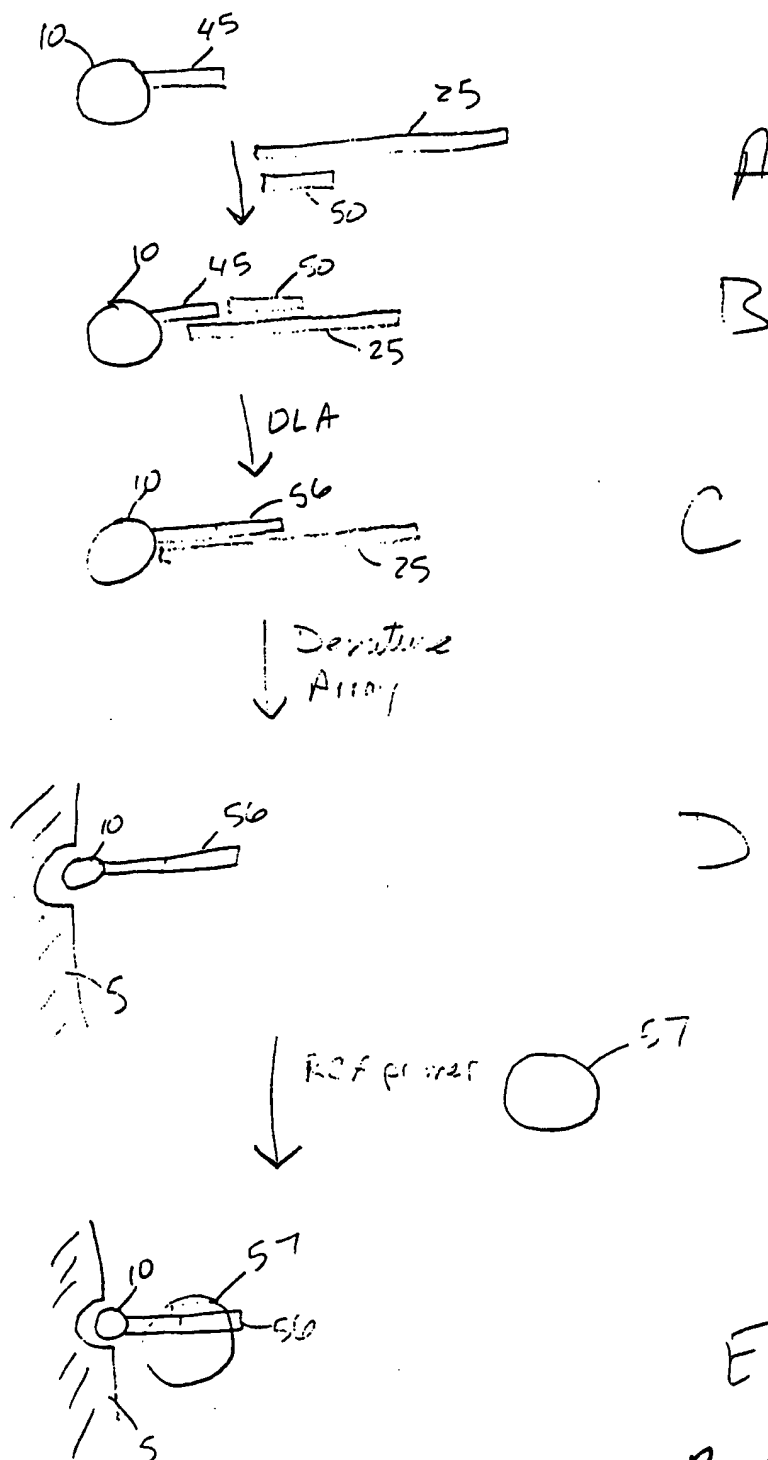 10 45
25
50
A
10 45 50
25
B
OLA
10 56
25
C
Denature
Array
10 56
5
D
RCA primer 57
10 57
56
5
E